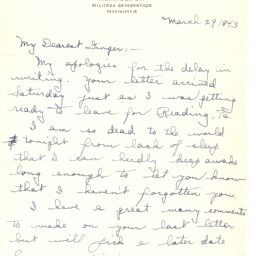 MILITARY RESERVATION
PENNSYLVANIA
March 29, 1943
My Dearest Ginger:-
My apologies for the delay in
writing. Your letter arrived
Saturday just as I was getting
ready to leave for Reading, Pa
I am so dead to the world
tonight from lack of sleep
that I can hardly keep awake
long enough to let you know
that I haven't forgotten you.
I have a great many comments
to make on your last letter
but will pick a later date